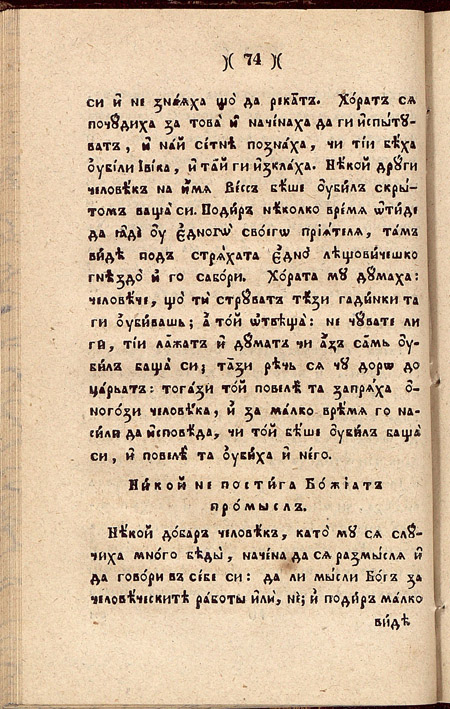 )( 74 )(
си и҆ не зна́ѧха що̀ да река́тъ. Хо́ратъ сѧ
почꙋ́диха за това̀ и҆ начи́наха да ги и҆спы́тꙋ-
ватъ, и҆ на́й се́тнѣ позна́ха, чи ті́и бѣ́ха
ᲂу҆би́ли І҆ві́ка, и҆ та́й ги и҆зкла́ха. Нѣ́кой дрꙋ́ги
человѣ́къ на и҆́мѧ Ве́ссъ бѣ́ше ᲂу҆би́лъ скры́-
томъ баща̀ си. Поди́ръ нѣ́колко вре́мѧ ѿи́де
да ꙗ҆дѐ ᲂу҆ є҆дногѡ̀ сво́егѡ прїѧ́телѧ, та́мъ
ви́дѣ подъ стрѧ́хата є҆дно̀ лѣщови́чешко
гнѣздо̀ и҆ го сабо́ри. Хо́рата мꙋ дꙋ́маха:
человѣ́че, що̀ ты̀ стрꙋ́ватъ тѣ́зи гади́нки та
ги ᲂу҆би́вашь; а҆ то́й ѿвѣща̀: не чꙋ́вате ли
ги̑, ті́и ла́жатъ и҆ дꙋ́матъ чи а҆́зъ са́мь ᲂу҆-
би́лъ баща̀ си; та́зи рѣ́чь сѧ чꙋ̀ до́рѡ до
ца́рьатъ: тога́зи то́й повелѣ̀ та запрѧ́ха ѻ҆-
ного́зи человѣ́ка, и҆ за ма́лко врѣ́мѧ го на-
си́ли да и҆сповѣ́да, чи то́й бѣ́ше ᲂу҆би́лъ баща̀
си, и҆ повелѣ̀ та ᲂу҆би́ха и҆ не́го.
Ни́кой не пости́га Бо́жїатъ
про́мыслъ.
Нѣ́кой до́баръ человѣ́къ, като̀ мꙋ сѧ слꙋ-
чи́ха мно́го бѣды̀, наче́на да сѧ размы́слѧ и҆
да гово́ри въ се́бе си: да ли мы́сли Бо́гъ за
человѣ́ческитѣ ра́боты и҆лѝ, нѐ; и҆ поди́ръ ма́лко
ви́дѣ